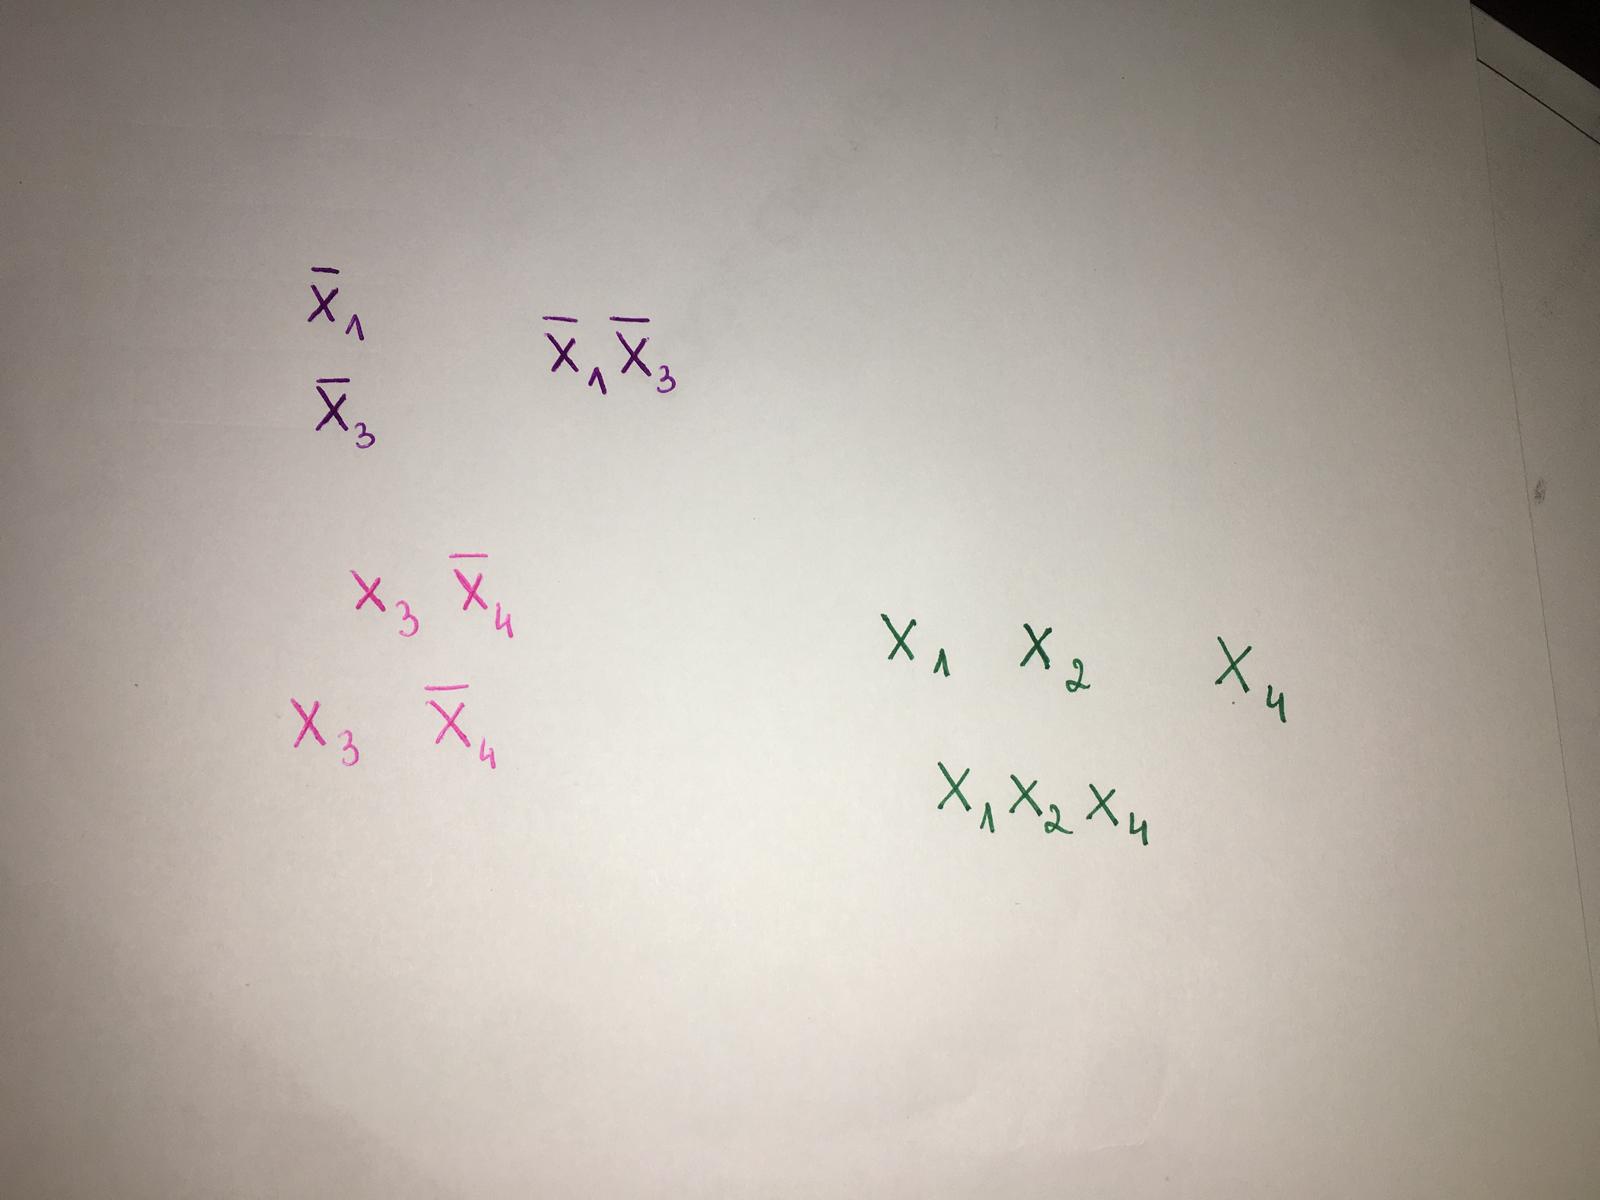 X̅₁
X̅₁X̅₃
X̅₃
X₃ X̅₄
X₃ X̅₄
X₁ X₂ X₄
X₁X₂X₄